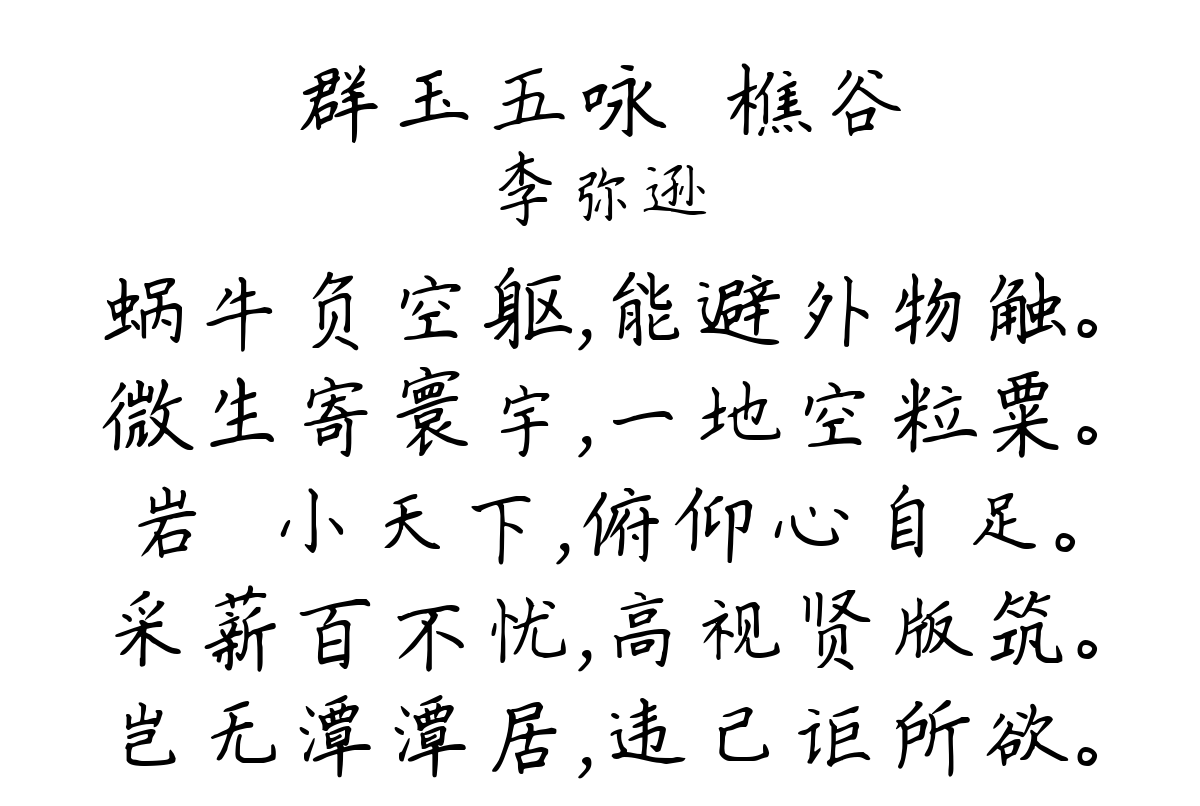 群玉五咏 樵谷
李弥逊
蜗牛负空躯,能避外物触。
微生寄寰宇,一地空粒粟。
岩 小天下,俯仰心自足。
采薪百不忧,高视贤版筑。
岂无潭潭居,违己讵所欲。